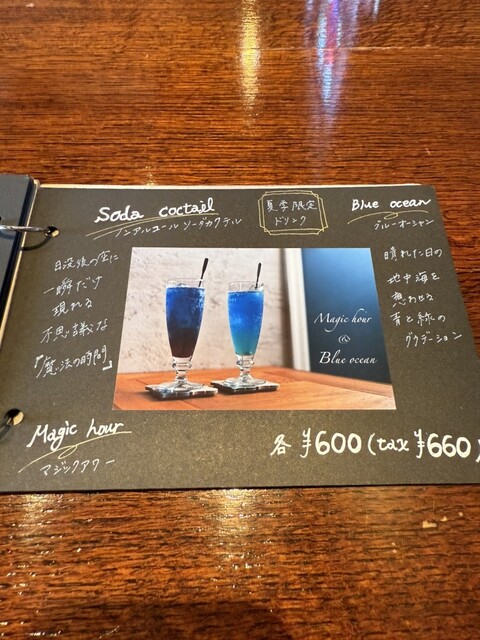 Soda coctail
ノンアルコール ソーダカクテル
夏季限定
ドリンク
Blue ocean
ブルーオーシャン
日没後の空に
一瞬だけ
現れる
不思議な
『魔法の時間』
Magic hour
&
Blue ocean
晴れた日の
地中海を
思わせる
青と緑の
グラデーション
Magic hour
マジックアワー
各 ¥600 (tax ¥660)